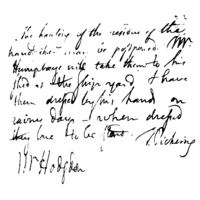 The hauling of the residue of the
hand is postponed. Mr
Humphreys will take them to his
shed at the Ship yard & have
them dressed by his hand on
rainy days - when dressed
they are to be
T. Pickering
Mr Hodgdon